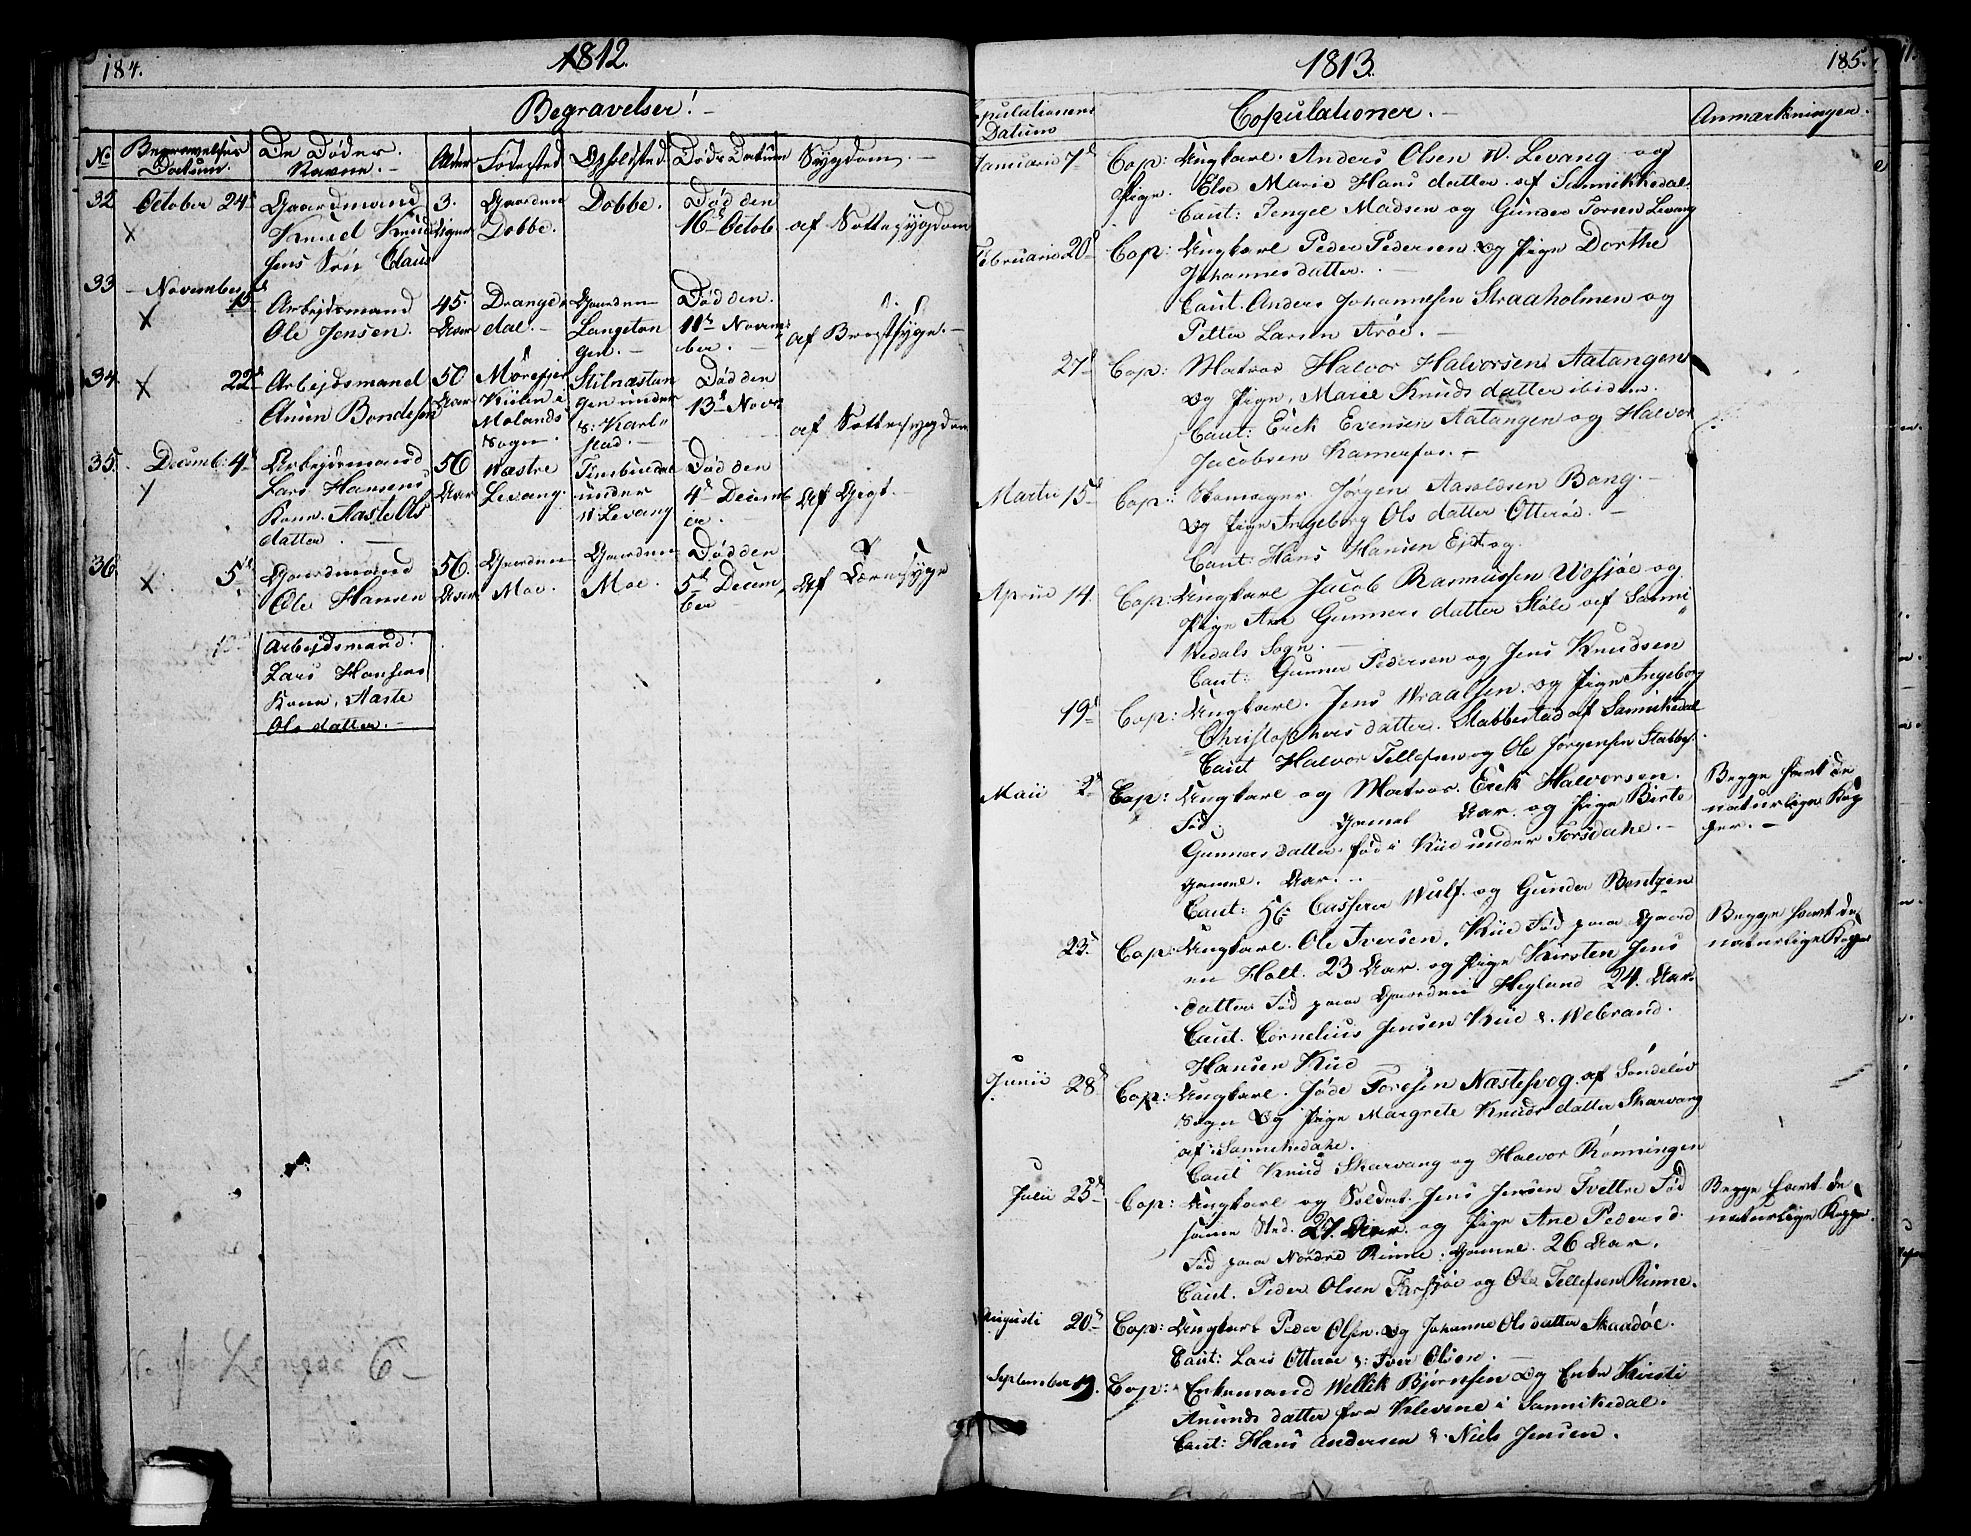 184.
1812.
Begravelser!
No
Begravelses Datum.
De Dødes Navne.
Alder
Fødested
Opholdsted
Døds Datum
Sygdom.
32
October 24d
Gaardmand
Knud Knud
sens Søn Claus
3.
Uger
Gaarden
Dobbe.
Dobbe.
Død den
16d Octob.
af Sottesygdom
33
November
15d
Arbejdsmand
Ole Jensen.
45.
Aar
Drangedal.
Gaarden
Langetangen.
Død den
11te November.
af Brøstsyge.
34
22d
Arbejdsmand
Bondesen
50
Aar
i
Molands
Sogn.
Stilnæstan
gen under
Karl"
stad.
Død den
13d Novr
af Sottesygdom
35.
Decemb: 4d
Arbejdsmand
Lars Hansens
Kone. Aaste Ols
datter.
56
Aar
Westre
Levang.
under
W: Levang
Død den
4d Decemb
er.
Af Gigt.
36.
5d
Gaardmand
Ole Hansen
56.
Aar
Gaarden
Moe.
Gaarden
Moe.
Død den
5d Decem
ber
Af Tæresyge
Arbejdsmand
Lars Hansens
Kone, Aaste
Ols datter.
6
1813.
185.
Copulationens
Datum
Copulationer.
Anmærkninger.
Januarii 7d
Cop: Ungkarl. Anders Olsen W. Levang og
Pige. Else Marie Hans datter af Sannikkedal
Caut: Tengel Madsen og Gunder Torsen Levang
Februarii 20d
Cop: Ungkarl Peder Pedersen og Pige Dorthe
Johannes datter.
Caut. Anders Johannesen Straaholmen og
Petter Larsen Arøe.
27d
Cop: Matros Halvor Halvorsen Aatangen
og Pige, Marie Knuds datter ibidem.
Caut: Erick Evensen Aatangen og Halvor
Jacobsen Kamerfos.
Martii 15d
Cop: Skomager Jørgen Aasoldsen Bang.
og Pige Ingeborg Ols datter Otterøe.
Caut: Hans Hansen
Aprili 14.
Cop: Ungkarl Jacob Rasmussen Wosjøe og
Pige Ane Gunners datter Støle af Sanni
kedals Sogn.
Caut: Gunner Pedersen og Jens Knudsen
19d
Cop: Ungkarl. Jens Wraalsen. og Pige Ingeborg
Christophers datter. Stabbestad af Sannikedal
Caut Halvor Tellefsen og Ole Jørgensen Stabbes.
Maii 2d
Cop: Ungkarl og Matros. Erick Halvorsen.
Fød. Gamel Aar. og Pige Birte
Gunners datter. fød i Kiil under Torsdahl.
gamel. Aar.
Caut: Hr Casserer Wulf. og Gunder Bentzen
Begge havt de
naturlige Kop
per.
23d
Cop: Ungkarl. Ole Iversen, Kiil Fød paa Gaard
en Holt. 23 Aar. og Pige Kirsten Jens
datter Fød paa Gaarden Hegland 24. Aar.
Caut. Cornelius Jensen Kiil &. Webrand.
Hansen Kiil
Begge havt de
naturlige Kopper
Junii 28d
Cop: Ungkarl. Jøde Toresen Næstesvog. af Søndeløv
Sogn Og Pige Margrete Knuds datter Skarvang
af Sannikedahl.
Caut Knud Skarvang og Halvor Rønningen
Julii 25d
Cop: Ungkarl og Soldat. Jens Jensen Tvettre Fød
samme Sted. 27. Aar. og Pige Ane Peders d.
Fød paa Nordre Rinne. Gamel. 26 Aar.
Caut. Peder Olsen Farsjøe og Ole Tellefsen Rinne.
Begge havt de
naturlige Kopper.
Augusti 20d
Cop: Ungkarl Peder Olsen. og Johanne Ols datter Skaadøe.
Caut: Lars Otterøe &: Iver Olsen.
September 19.
Cop: Enkemand Wellik Bjørnsen Og Enke Kirsti
Anunds datter fra Klevene i Sannikedal.
Caut: Hans Andersen &. Niels Jensen.